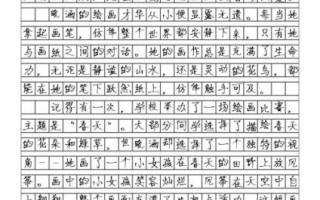 的绘画才华从小便显露无遗。每当她
拿起画笔,仿佛整个世界都安静下来,只有她
与画纸之间的对话。她的画作总是充满了生命
力,无论是静谧的山水,还是灵动的花鸟,都
能在她的笔下跃然纸上,仿佛触手可及。
记得有一次,学校举办了一场绘画比赛,
主题是“春天”。大部分同学选择了描绘春天
的花朵和绿草,但却选择了一个独特的视
角——她画了一个小女孩在春天的田野上放风
筝。画中的小女孩笑容灿烂,风筝在天空中自